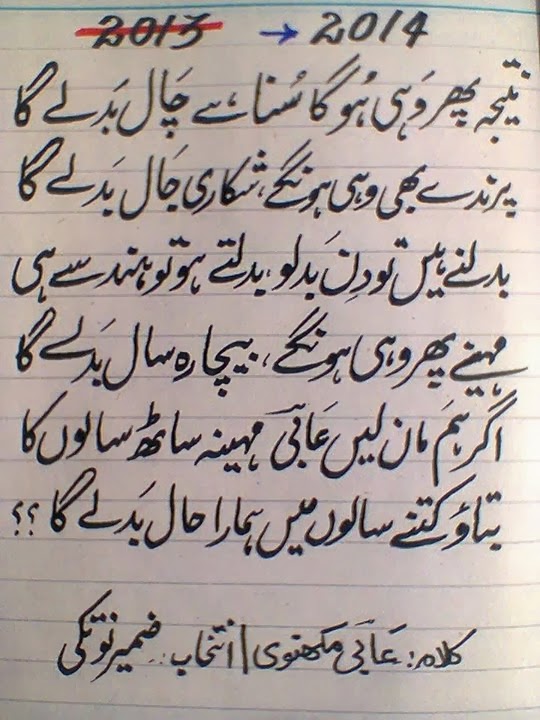 2013 → 2014
نتیجہ پھر وَہی ہُوگا سُنا ہے چَال بَدلے گا
پرندے بھی وہی ہونگے، شکاری جَال بَدلے گا
بدلنے ہیں تو دِن بَدلو، بدلتے ہو تو ہندسے ہی
مہینے پھر وہی ہونگے، بیچارہ سال بَدلے گا
اگر ہَم مَان لیں عَابیؔ مہینہ ساٹھ سالوں کا
بتاؤ کتنے سالوں میں ہمارا حال بَدلے گا ؟؟
کلام: عَابیؔ مکھنوی | انتخاب: ضمیر نوتکی